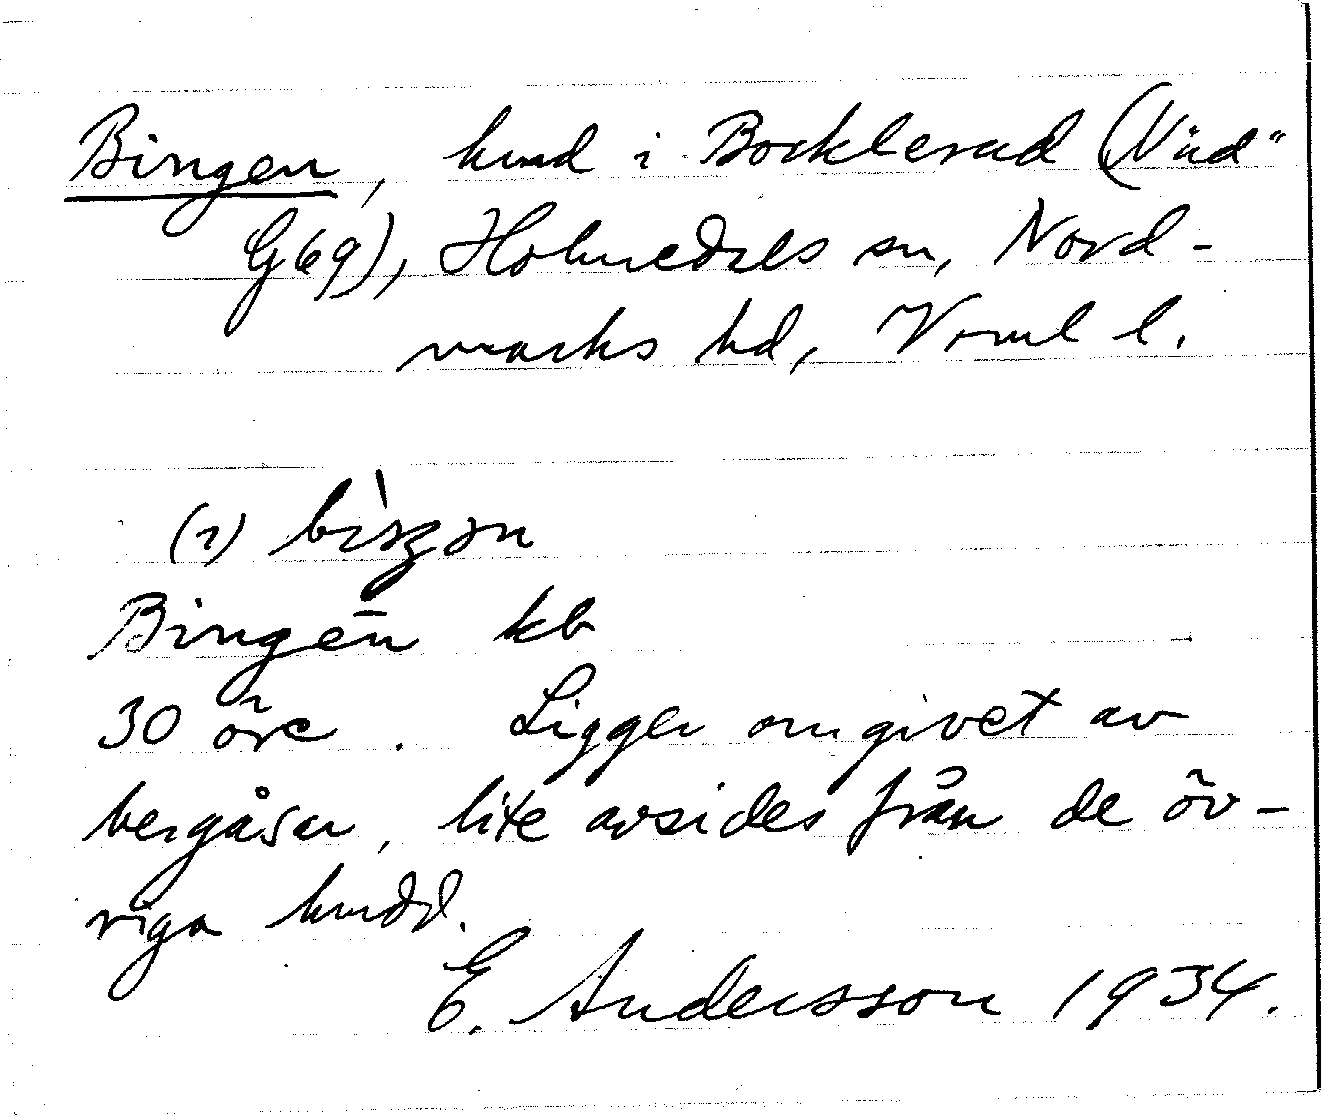 Bingen, hmd i Bocklerud (Näd"
G69), Holmedals sn, Nord-
marks hd, Vrml l.
(1) bìŋən
Bingen kb
30 öre. Ligger omgivet av
bergåsar, lite avsides från de öv-
riga hmdd.
E. Andersson 1934.